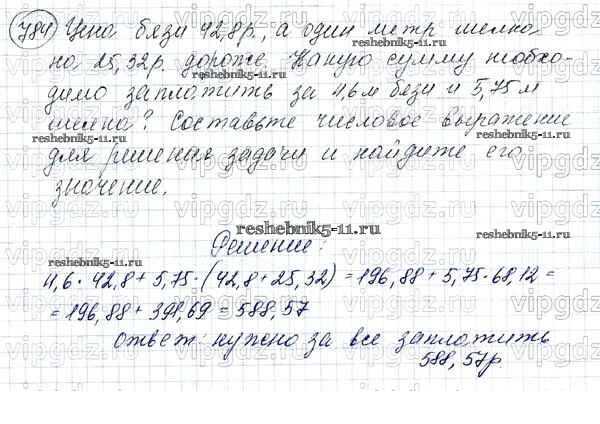 784 Цена бязи 42,8р., а один метр шелка
на 25,32р. дороже. Какую сумму необхо-
димо заплатить за 4,6м бязи и 5,75м
шелка? Составьте числовое выражение
для решения задачи и найдите его
значение.
Решение:
4,6 · 42,8 + 5,75 · (42,8 + 25,32) = 196,88 + 5,75 · 68,12 =
= 196,88 + 391,69 = 588,57
ответ: нужно за все заплатить
588,57р
reshebnik5-11.ru
vipgdz.ru